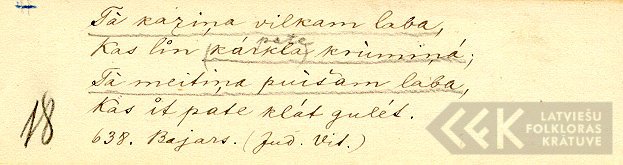 Tā kaziņa vilkam laba,
pate
Kas līn (kārkla krūmiņā;
Tā meitiņa puišam laba,
Kas īt pate klāt gulēt.
18
638. Bajars. (Jud. Vit.)
LATVIEŠU
FOLKLORAS
KRĀTUVE